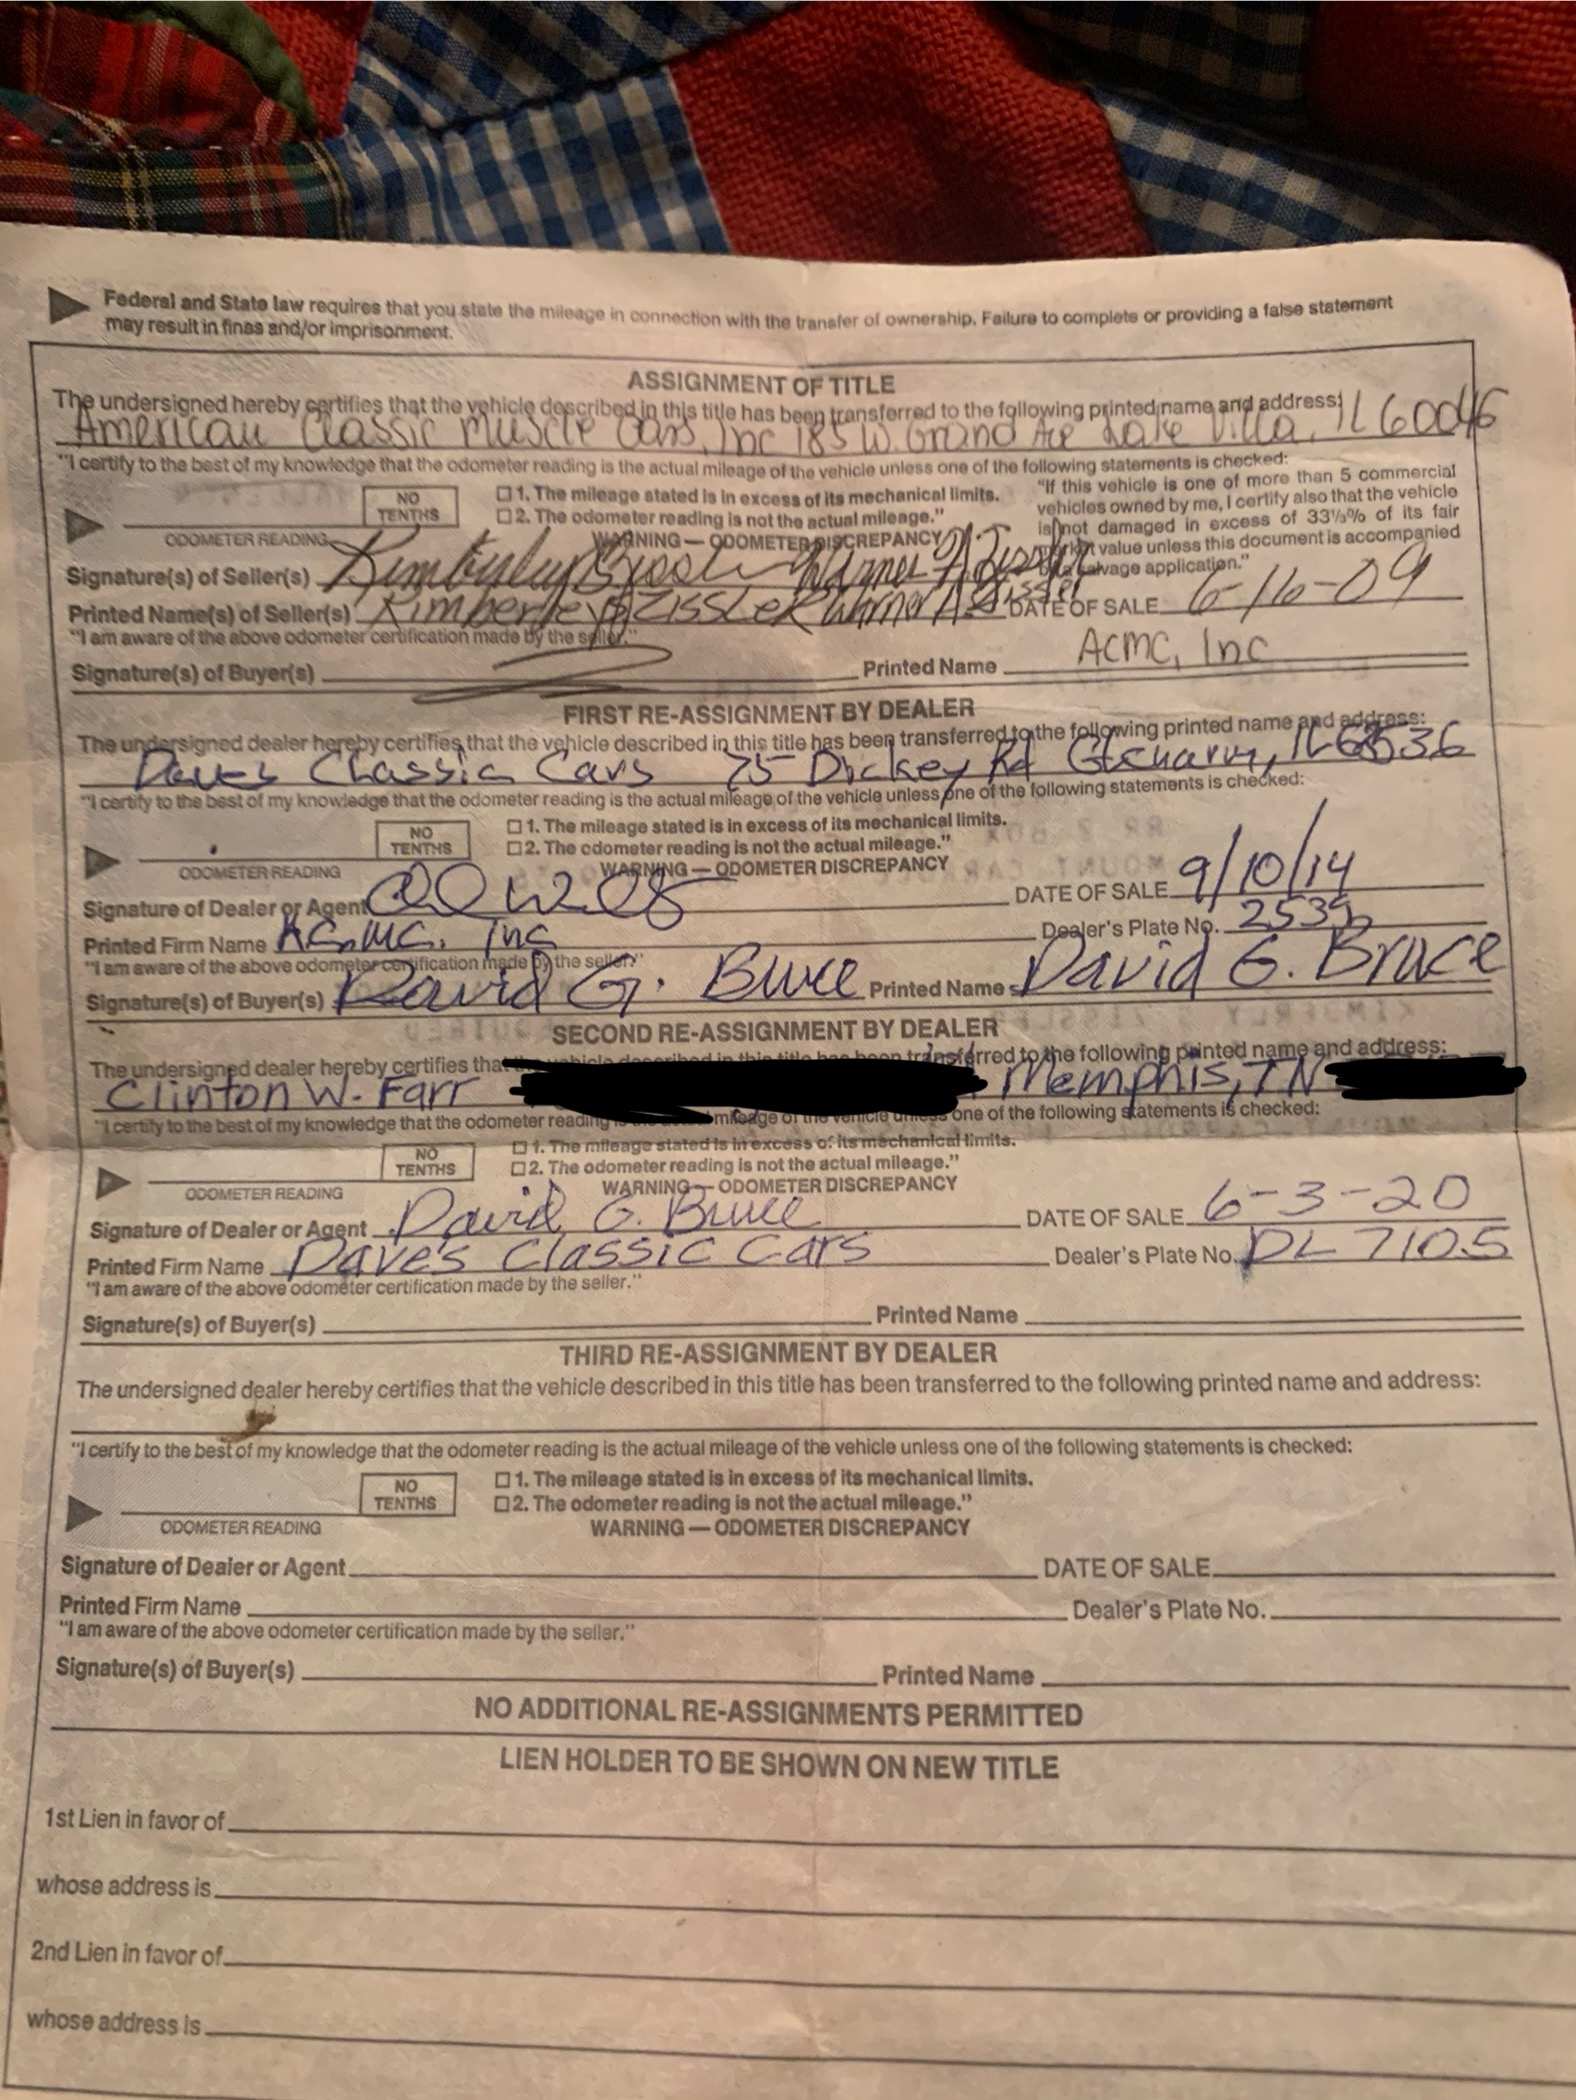 Federal and State law requires that you state the mileage in connection with the transfer of ownership. Failure to complete or providing a false statement
may result in fines and/or imprisonment.
ASSIGNMENT OF TITLE
The undersigned hereby certifies that the vehicle described in this title has been transferred to the following printed name and address:
American Classic Muscle Cars, Inc 185 W. Grand Ave Lake Villa, IL 60046
"I certify to the best of my knowledge that the odometer reading is the actual mileage of the vehicle unless one of the following statements is checked:
NO TENTHS
1. The mileage stated is in excess of its mechanical limits.
2. The odometer reading is not the actual mileage."
"If this vehicle is one of more than 5 commercial
vehicles owned by me, I certify also that the vehicle
is not damaged in excess of 33⅓% of its fair
market value unless this document is accompanied
salvage application."
ODOMETER READING
WARNING — ODOMETER DISCREPANCY
Signature(s) of Seller(s) Kimberley Zissler Warner A. Zissler
Printed Name(s) of Seller(s) Kimberley Zissler Warner A. Zissler DATE OF SALE 6-16-09
"I am aware of the above odometer certification made by the seller."
Signature(s) of Buyer(s) Printed Name ACMC, Inc
FIRST RE-ASSIGNMENT BY DEALER
The undersigned dealer hereby certifies that the vehicle described in this title has been transferred to the following printed name and address:
Daves Classic Cars 75 Dickey Rd IL 63536
"I certify to the best of my knowledge that the odometer reading is the actual mileage of the vehicle unless one of the following statements is checked:
NO TENTHS
1. The mileage stated is in excess of its mechanical limits.
2. The odometer reading is not the actual mileage."
ODOMETER READING
WARNING — ODOMETER DISCREPANCY
Signature of Dealer or Agent DATE OF SALE 9/10/14
Printed Firm Name A.C.M.C. Inc Dealer's Plate No. 2539
"I am aware of the above odometer certification made by the seller."
Signature(s) of Buyer(s) David G. Bruce Printed Name David G. Bruce
SECOND RE-ASSIGNMENT BY DEALER
The undersigned dealer hereby certifies that the vehicle described in this title has been transferred to the following printed name and address:
Clinton W. Farr Memphis, TN
"I certify to the best of my knowledge that the odometer reading is the mileage of the vehicle unless one of the following statements is checked:
NO TENTHS
1. The mileage stated is in excess of its mechanical limits.
2. The odometer reading is not the actual mileage."
ODOMETER READING
WARNING — ODOMETER DISCREPANCY
Signature of Dealer or Agent David G. Bruce DATE OF SALE 6-3-20
Printed Firm Name Dave's Classic Cars Dealer's Plate No. DL 7105
"I am aware of the above odometer certification made by the seller."
Signature(s) of Buyer(s) Printed Name
THIRD RE-ASSIGNMENT BY DEALER
The undersigned dealer hereby certifies that the vehicle described in this title has been transferred to the following printed name and address:
"I certify to the best of my knowledge that the odometer reading is the actual mileage of the vehicle unless one of the following statements is checked:
NO TENTHS
1. The mileage stated is in excess of its mechanical limits.
2. The odometer reading is not the actual mileage."
ODOMETER READING
WARNING — ODOMETER DISCREPANCY
Signature of Dealer or Agent DATE OF SALE
Printed Firm Name Dealer's Plate No.
"I am aware of the above odometer certification made by the seller."
Signature(s) of Buyer(s) Printed Name
NO ADDITIONAL RE-ASSIGNMENTS PERMITTED
LIEN HOLDER TO BE SHOWN ON NEW TITLE
1st Lien in favor of
whose address is
2nd Lien in favor of
whose address is